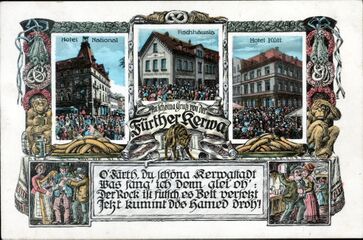 Hotel National
Fischhäusla
Hotel Kütt
An schöna Gruß von der
Fürther Kerwa
O Fürth, du schöna Kerwastadt
Was fang' ich denn glei oh':
Der Rock is futsch es Bett versetzt
Jetzt kummt dös Hamed droh!